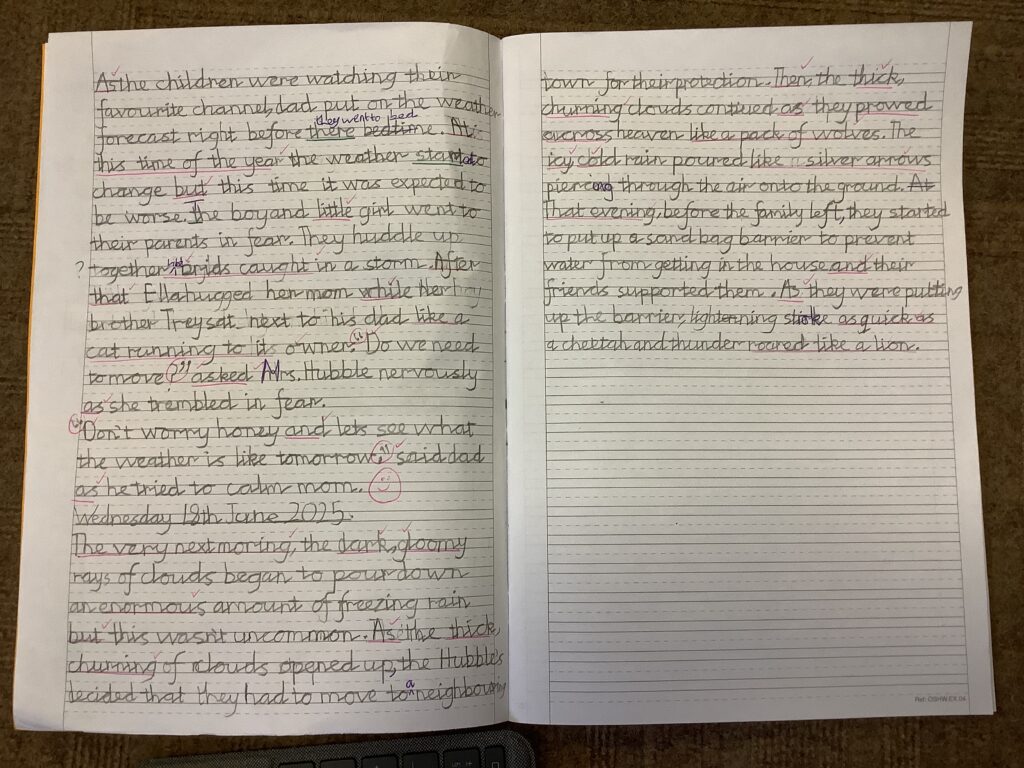 As the children were watching their
favourite channel, dad put on the weather
they went to bed
forecast right before there bedtime. At
this time of the year the weather start to
change but this time it was expected to
be worse. The boy and little girl went to
their parents in fear. They huddle up
? together like brids caught in a storm. After
that Ella hugged her mom while her
brother Trey sat next to his dad like a
cat running to its owner. "Do we need
to move?" asked Mrs. Hubble nervously
as she trembled in fear.
"Don't worry honey and lets see what
the weather is like tomorrow," said dad
as he tried to calm mom.
Wednesday 18th June 2025.
The very next moring, the dark, gloomy
rays of clouds began to pour down
an enormous amount of freezing rain
but this wasn't uncommon. As the thick,
churning of clouds opened up, the Hubble's
decided that they had to move to a neighbouring
town for their protection. Then, the thick,
churning clouds contiued as they prowed
across heaven like a pack of wolves. The
icy cold rain poured like silver arrows
piercing through the air onto the ground. At
That evening, before the family left, they started
to put up a sand bag barrier to prevent
water from getting in the house and their
friends supported them. As they were putting
up the barrier, lightenning stroke as quick as
a cheetah and thunder roared like a lion.
Ref: OSHW.EX.04